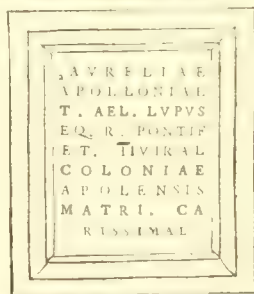 AVRELIAE
APOLLONIAE
T. AEL. LVPVS
EQ. R. PONTIF
ET. IIVIRAL
COLONIAE
APOLENSIS
MATRI. CA
RISSIMAE